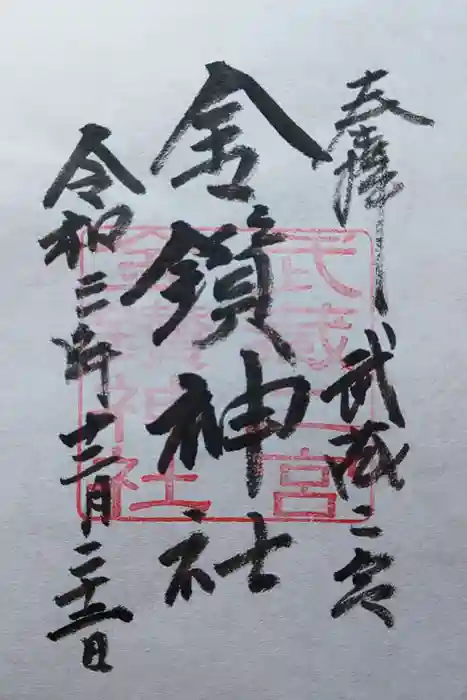 奉拝 武蔵二宮
金鑚神社
令和三年十二月二十一日
武蔵二宮
金鑚神社